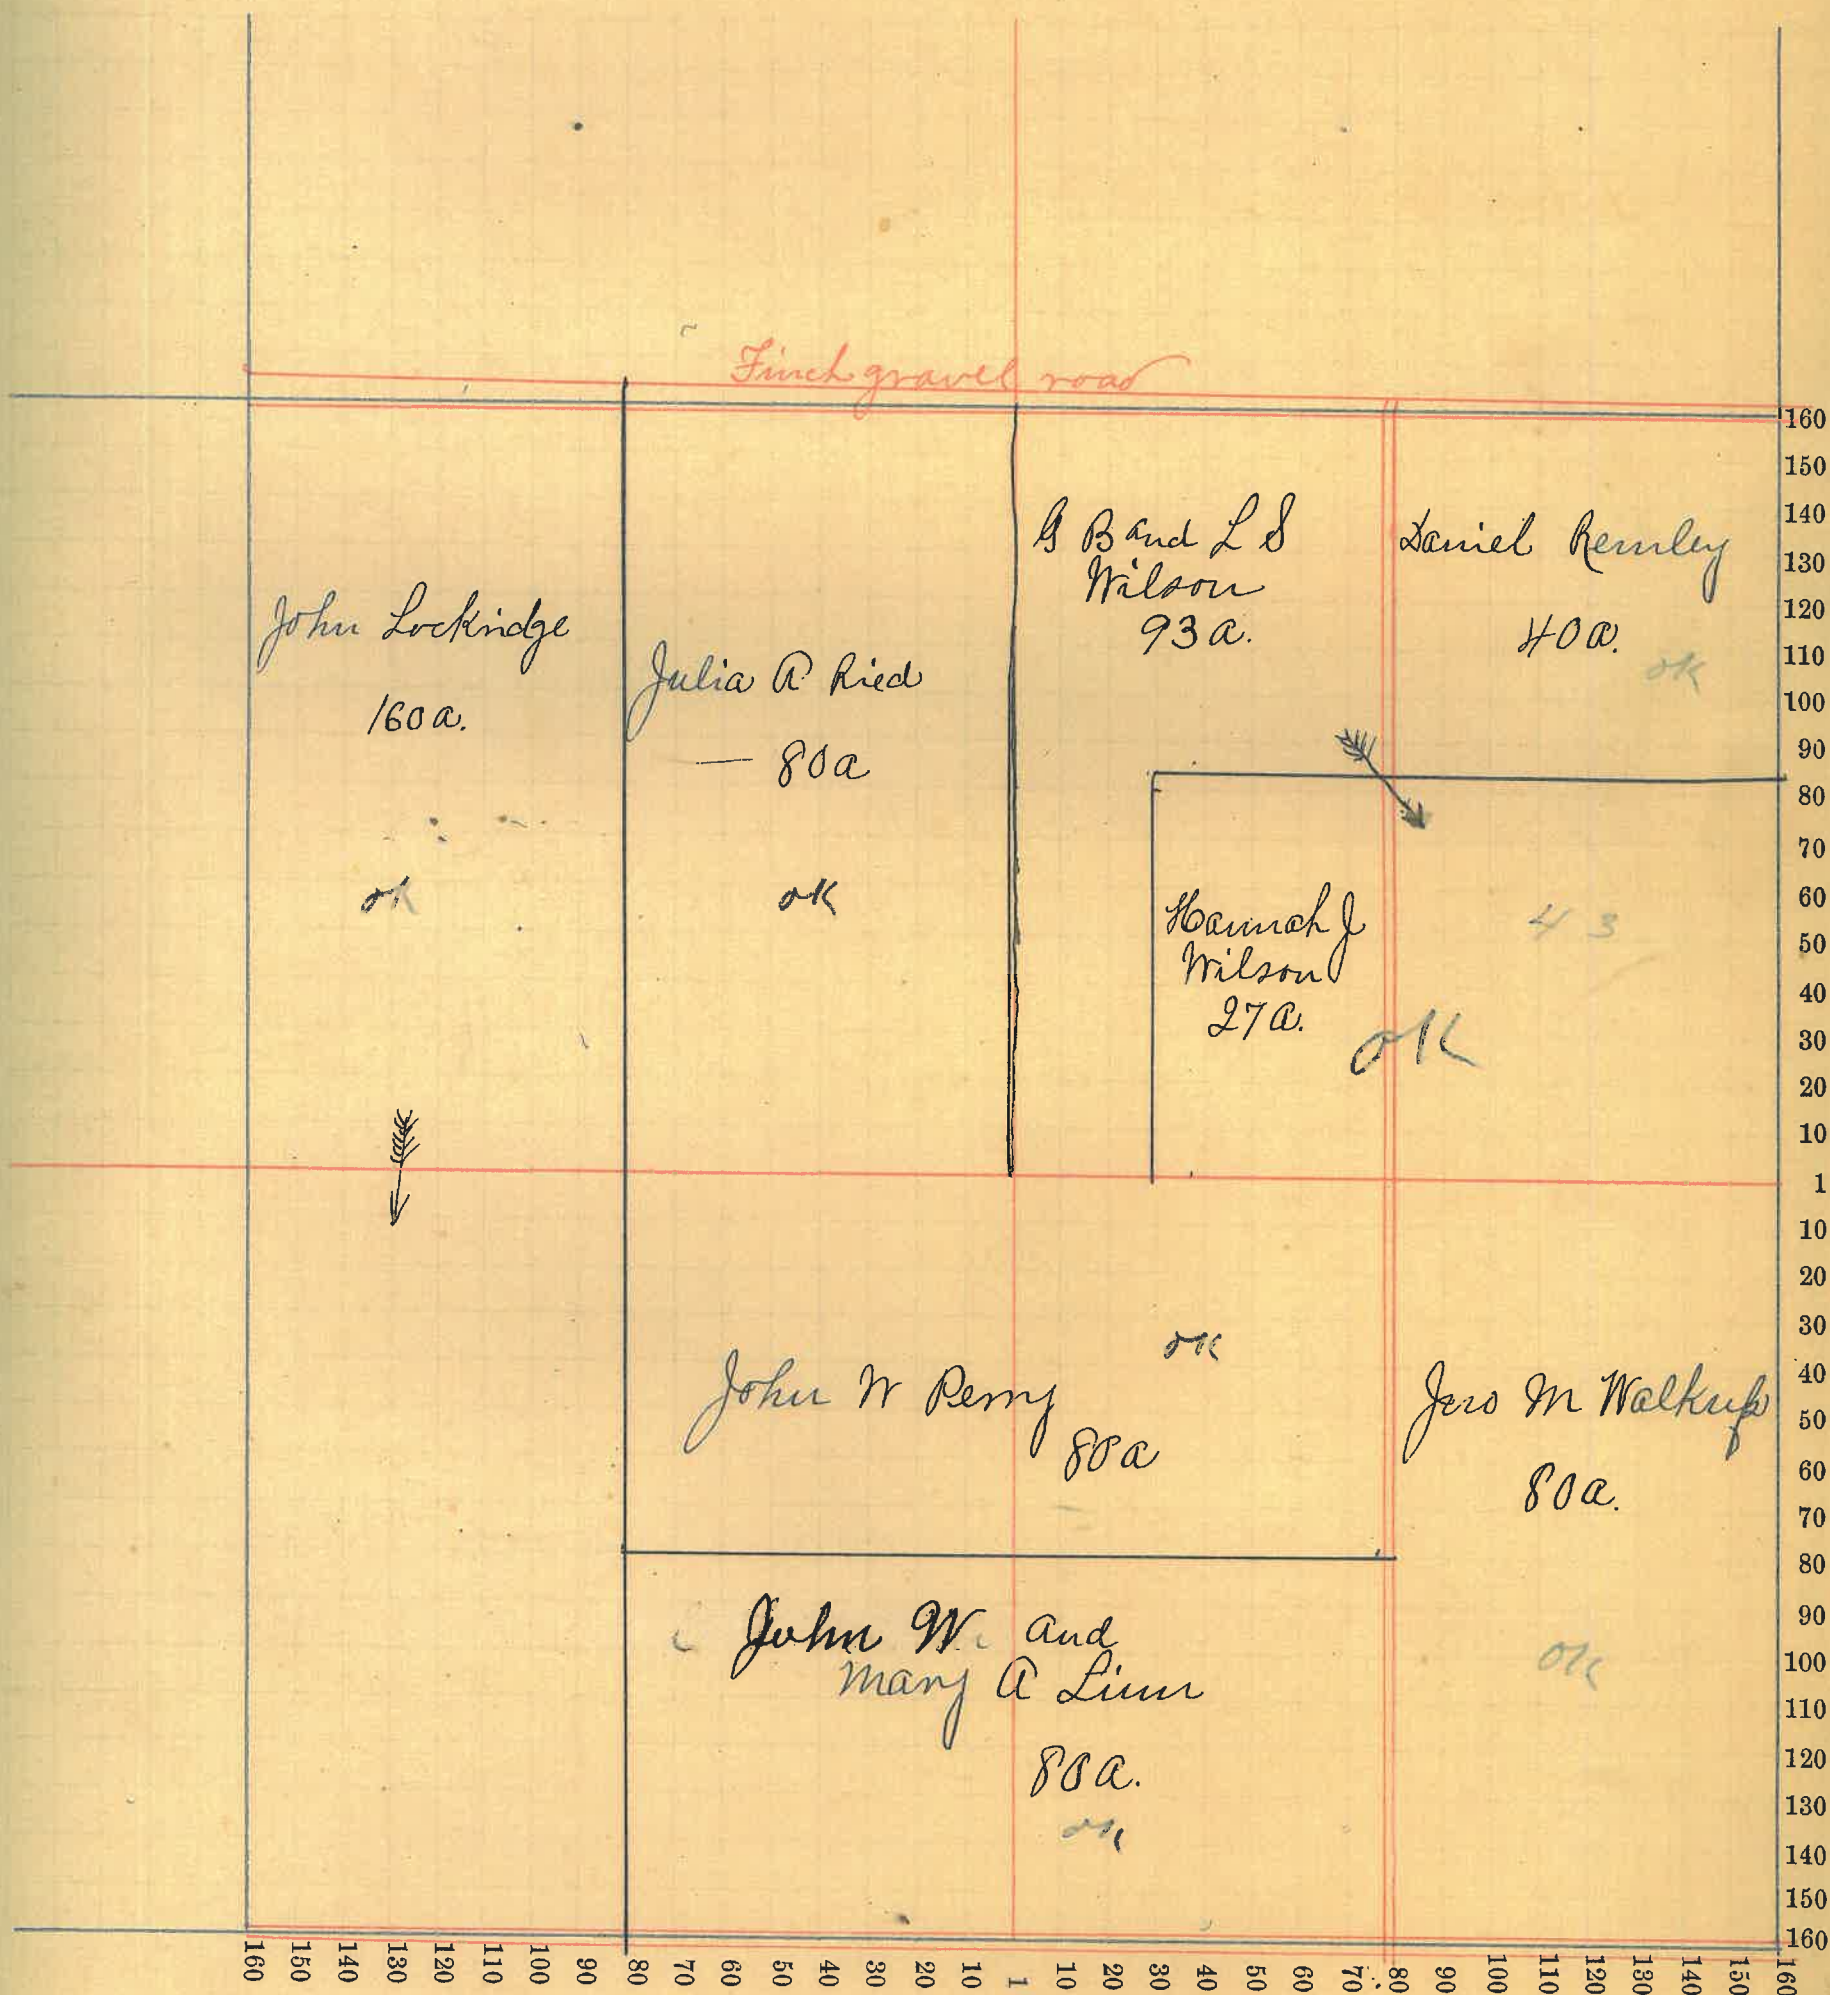 Finch gravel road
G B and L S
Wilson
93 a.
Daniel Remley
40 a.
ok
John Lockridge
160 a.
ok
Julia A Ried
— 80 a
ok
Hannah J
Wilson
27 a.
ok
4 3
John W Perry
80 a
ok
Jno M Walkup
80 a.
ok
John W. and
Mary A Linn
80 a.
ok
160
150
140
130
120
110
100
90
80
70
60
50
40
30
20
10
1
10
20
30
40
50
60
70
80
90
100
110
120
130
140
150
160
160 150 140 130 120 110 100 90 80 70 60 50 40 30 20 10 1 10 20 30 40 50 60 70 80 90 100 110 120 130 140 150 160